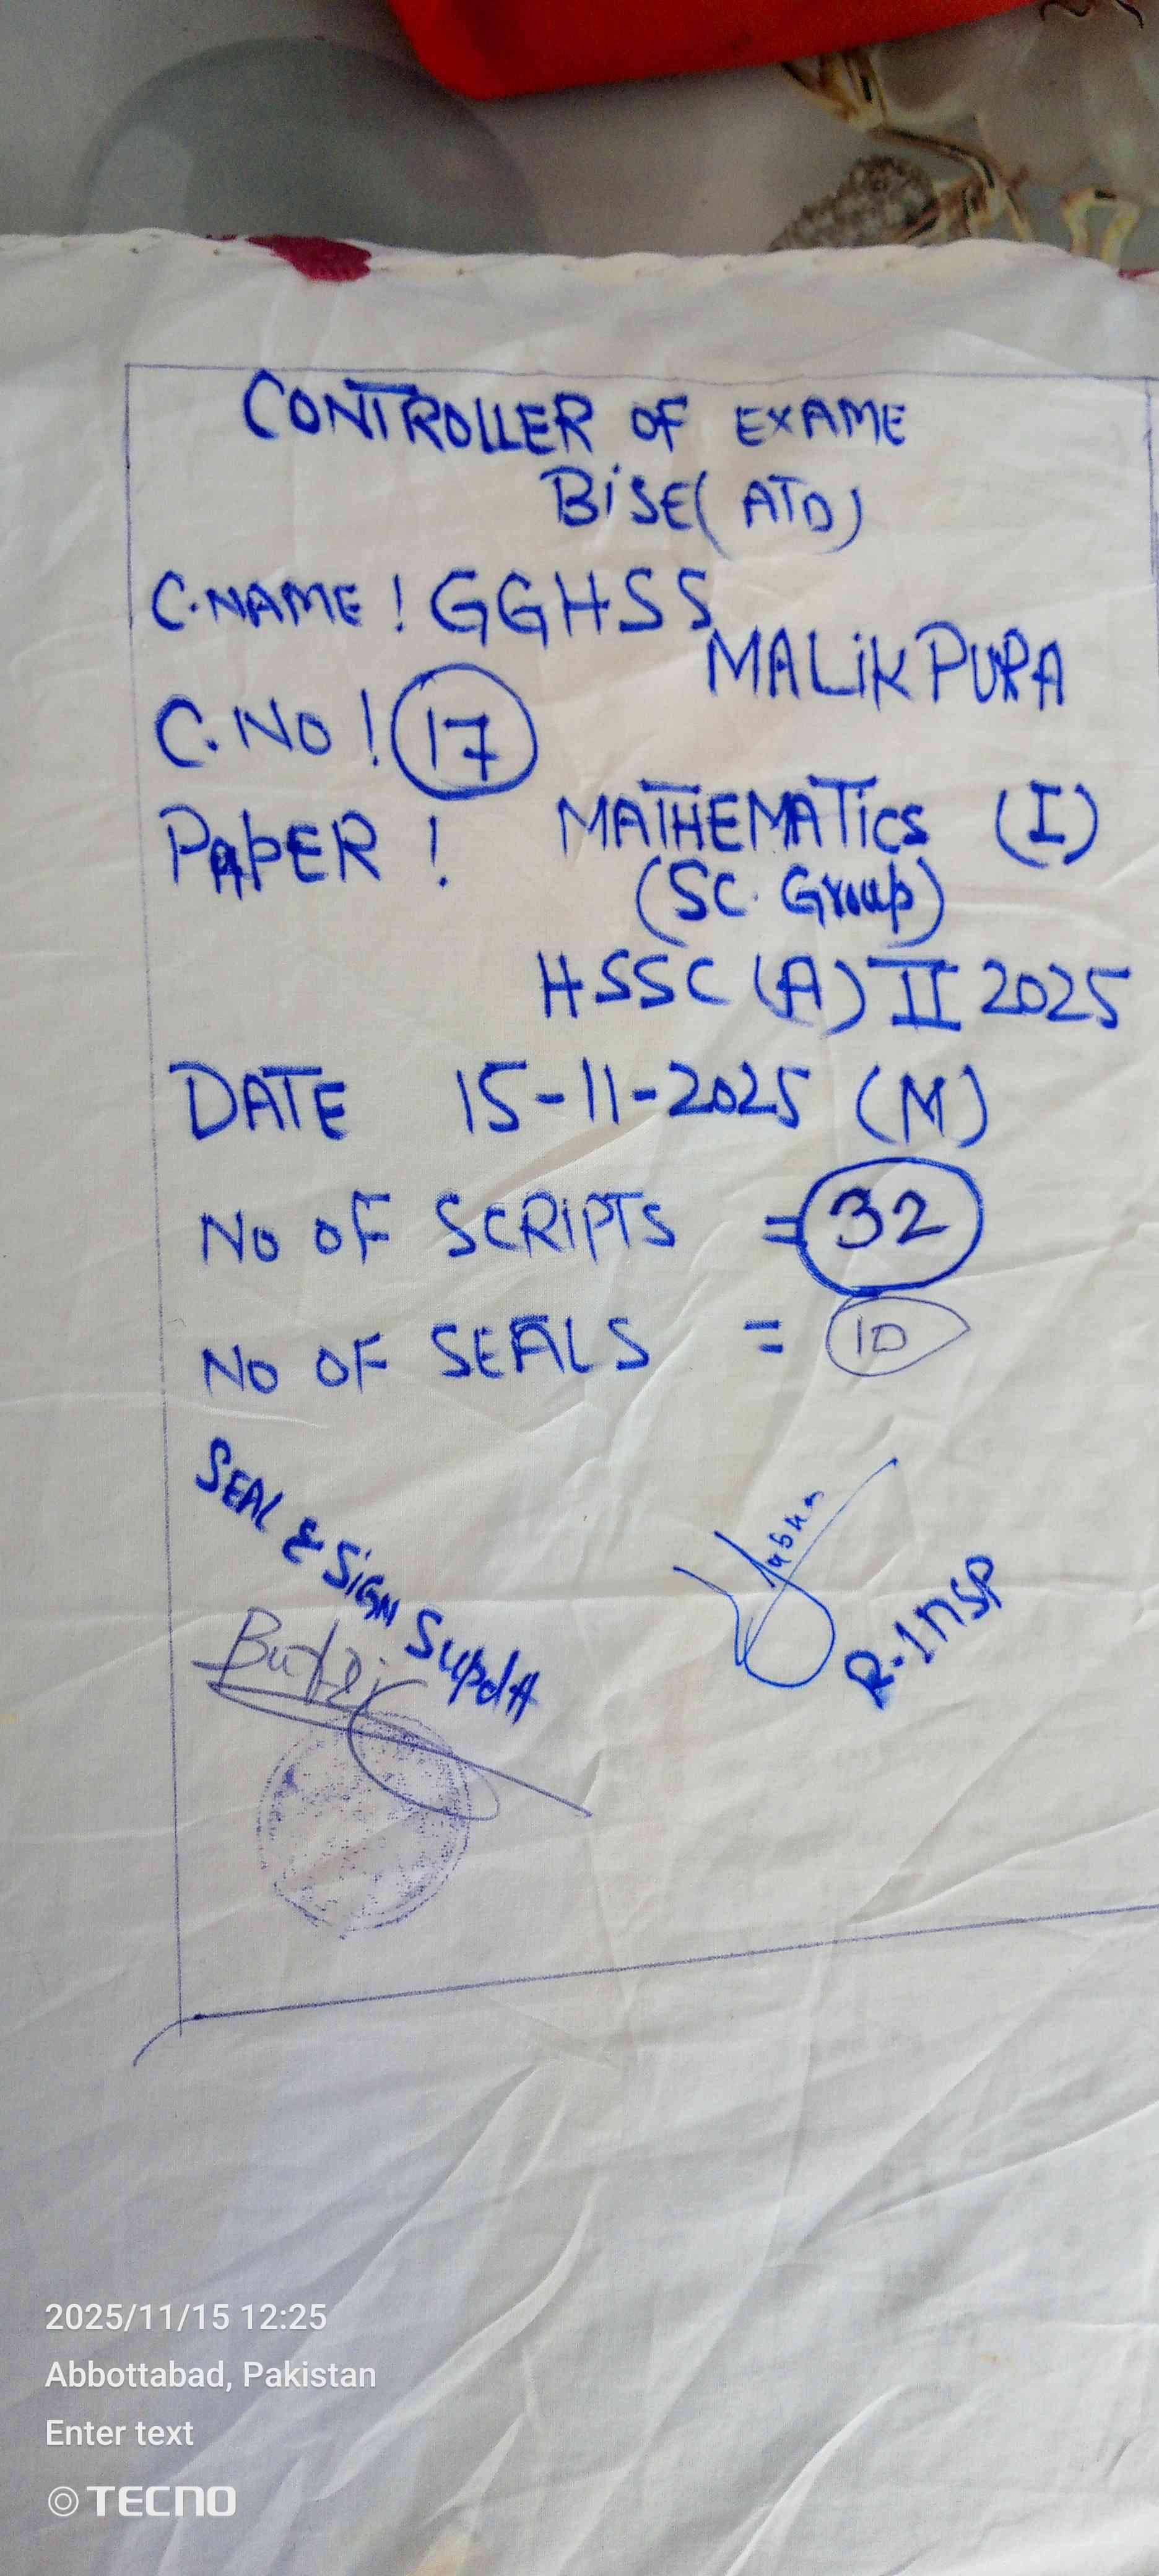 CONTROLLER OF EXAME
BISE( ATD)
C.NAME ! GGHSS
MALIKPURA
C.NO ! 17
PAPER ! MATHEMATICS (I)
(SC. Group)
HSSC (A) II 2025
DATE 15-11-2025 (M)
NO OF SCRIPTS = 32
NO OF SEALS = 10
SEAL & SIGN Supdtt
R.INSP
2025/11/15 12:25
Abbottabad, Pakistan
Enter text
TECNO